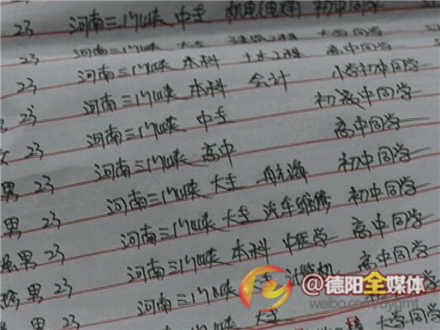 23 河南三门峡 中专 机电(电焊) 初中同学
23 河南三门峡 大专 同学
23 河南三门峡 本科 土木工程 高中同学
23 河南三门峡 本科 会计 小学初中同学
23 河南三门峡 中专 初中同学
男 23 河南三门峡 高中 高中同学
男 23 河南三门峡 大专 航海 初中同学
男 23 河南三门峡 大专 汽车维修 初中同学
男 23 河南三门峡 本科 中医学 高中同学
男 23 河南三门峡 大专 高中同学
男 23 河南三门峡 大专 大专同学
@德阳全媒体
weibo.com/dyqmt